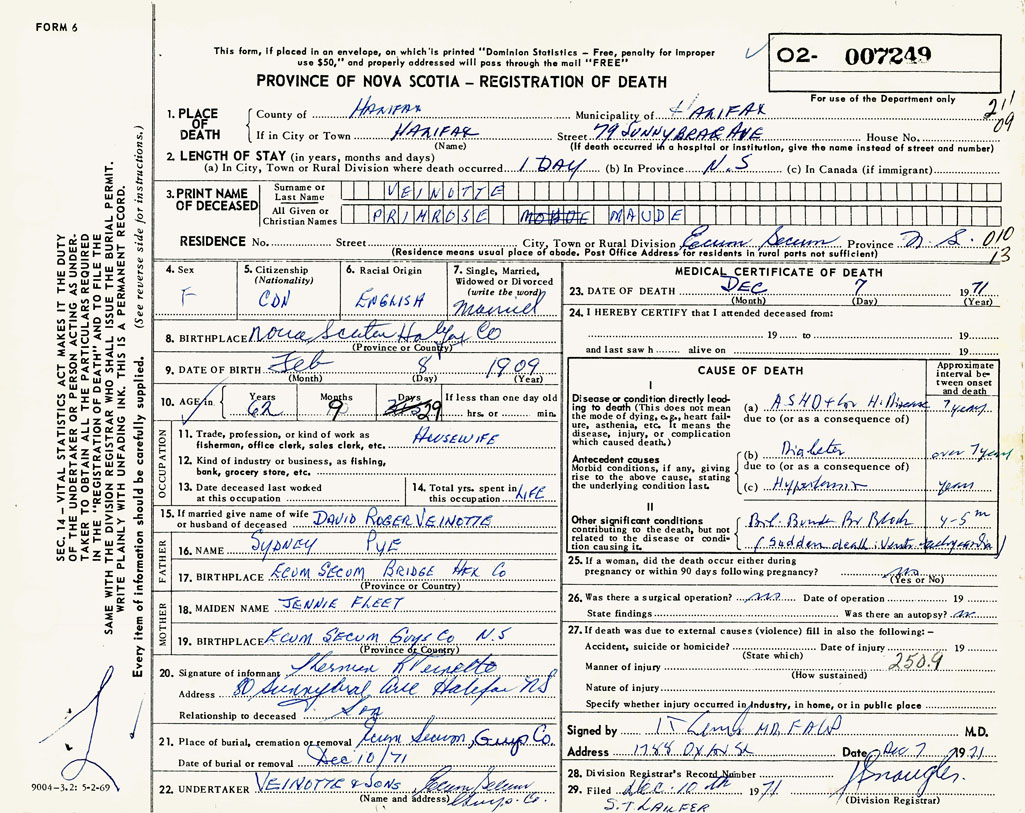 FORM 6
This form, if placed in an envelope, on which is printed "Dominion Statistics – Free, penalty for improper
use $50," and properly addressed will pass through the mail "FREE"
PROVINCE OF NOVA SCOTIA – REGISTRATION OF DEATH
02- 007249
For use of the Department only
211
09
1. PLACE OF DEATH
County of HALIFAX Municipality of HALIFAX
If in City or Town HALIFAX Street 79 SUNNYBRAE AVE House No.
(Name) (If death occurred in a hospital or institution, give the name instead of street and number)
2. LENGTH OF STAY (in years, months and days)
(a) In City, Town or Rural Division where death occurred 1 DAY (b) In Province N.S (c) In Canada (if immigrant)
3. PRINT NAME OF DECEASED
Surname or Last Name VEINOTTE
All Given or Christian Names PRIMROSE MAUDE
RESIDENCE No. Street City, Town or Rural Division Ecum Secum Province N.S. 010
(Residence means usual place of abode. Post Office Address for residents in rural parts not sufficient) 13
4. Sex F
5. Citizenship (Nationality) CDN
6. Racial Origin ENGLISH
7. Single, Married, Widowed or Divorced (write the word) Married
8. BIRTHPLACE Nova Scotia Halifax Co
(Province or Country)
9. DATE OF BIRTH Feb 8 1909
(Month) (Day) (Year)
10. AGE in Years 62 Months 9 Days 29 If less than one day old
hrs. or min.
OCCUPATION
11. Trade, profession, or kind of work as fisherman, office clerk, sales clerk, etc. HOUSEWIFE
12. Kind of industry or business, as fishing, bank, grocery store, etc.
13. Date deceased last worked at this occupation
14. Total yrs. spent in this occupation LIFE
15. If married give name of wife or husband of deceased DAVID ROGER VEINOTTE
FATHER
16. NAME SYDNEY PYE
17. BIRTHPLACE ECUM SECUM BRIDGE HFX Co
(Province or Country)
MOTHER
18. MAIDEN NAME JENNIE FLEET
19. BIRTHPLACE ECUM SECUM GUYS Co N.S
(Province or Country)
20. Signature of informant Sherman R Veinotte
Address 80 Sunnybrae Ave Halifax NS
Relationship to deceased Son
21. Place of burial, cremation or removal Ecum Secum, Guys Co.
Date of burial or removal Dec 10/71
22. UNDERTAKER VEINOTTE & SONS Ecum Secum
(Name and address) Guys. Co.
MEDICAL CERTIFICATE OF DEATH
23. DATE OF DEATH DEC 7 1971
(Month) (Day) (Year)
24. I HEREBY CERTIFY that I attended deceased from:
19 to 19
and last saw h alive on 19
CAUSE OF DEATH
Approximate interval between onset and death
I
Disease or condition directly leading to death (This does not mean the mode of dying, e.g., heart failure, asthenia, etc. It means the disease, injury, or complication which caused death.)
(a) ASHD + Cor H. Disease 7 years
due to (or as a consequence of)
Antecedent causes
Morbid conditions, if any, giving rise to the above cause, stating the underlying condition last.
(b) Diabetes over 7 years
due to (or as a consequence of)
(c) Hypertension years
II
Other significant conditions
contributing to the death, but not related to the disease or condition causing it.
Bundle Br Block 4-5
(Sudden death: Ventr. tachycardia)
25. If a woman, did the death occur either during pregnancy or within 90 days following pregnancy? no
(Yes or No)
26. Was there a surgical operation? no Date of operation 19
State findings Was there an autopsy? no
27. If death was due to external causes (violence) fill in also the following: –
Accident, suicide or homicide? Date of injury 19
(State which) 250.9
Manner of injury
(How sustained)
Nature of injury
Specify whether injury occurred in industry, in home, or in public place
Signed by M.D.
Address 1788 Oxford St Date Dec 7 1971
28. Division Registrar's Record Number
29. Filed Dec. 10th 1971
(Division Registrar)
SEC. 14 – VITAL STATISTICS ACT MAKES IT THE DUTY
OF THE UNDERTAKER OR PERSON ACTING AS UNDERTAKER TO OBTAIN ALL THE PARTICULARS REQUIRED
IN THE "REGISTRATION OF DEATH" AND TO FILE THE
SAME WITH THE DIVISION REGISTRAR WHO SHALL ISSUE THE BURIAL PERMIT.
WRITE PLAINLY WITH UNFADING INK. THIS IS A PERMANENT RECORD.
Every item of information should be carefully supplied. (See reverse side for instructions.)
9004-3.2: 5-2-69